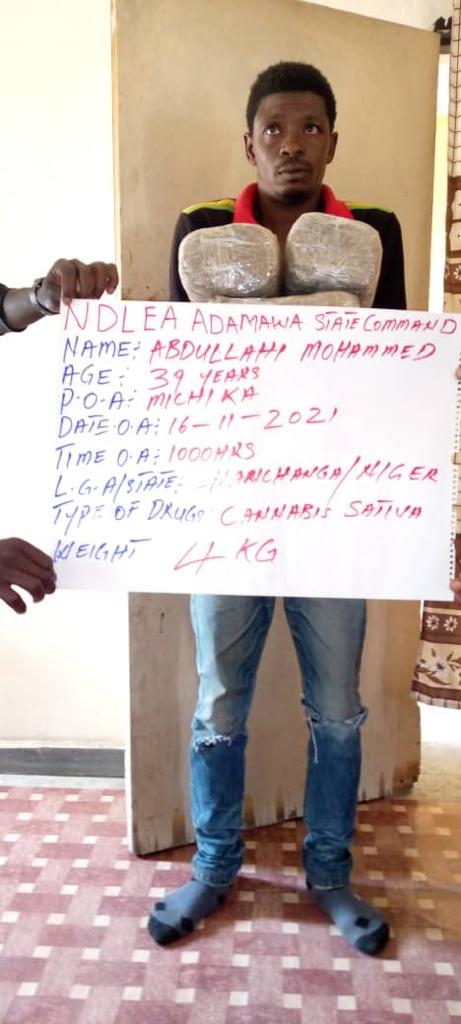 NDLEA ADAMAWA STATE COMMAND
NAME: ABDULLAHI MOHAMMED
AGE: 39 YEARS
P.O.A: MICHIKA
DATE.O.A: 16-11-2021
TIME O.A: 1000HRS
L.G.A/STATE: /NIGER
TYPE OF DRUGS: CANNABIS SATIVA
WEIGHT 4KG